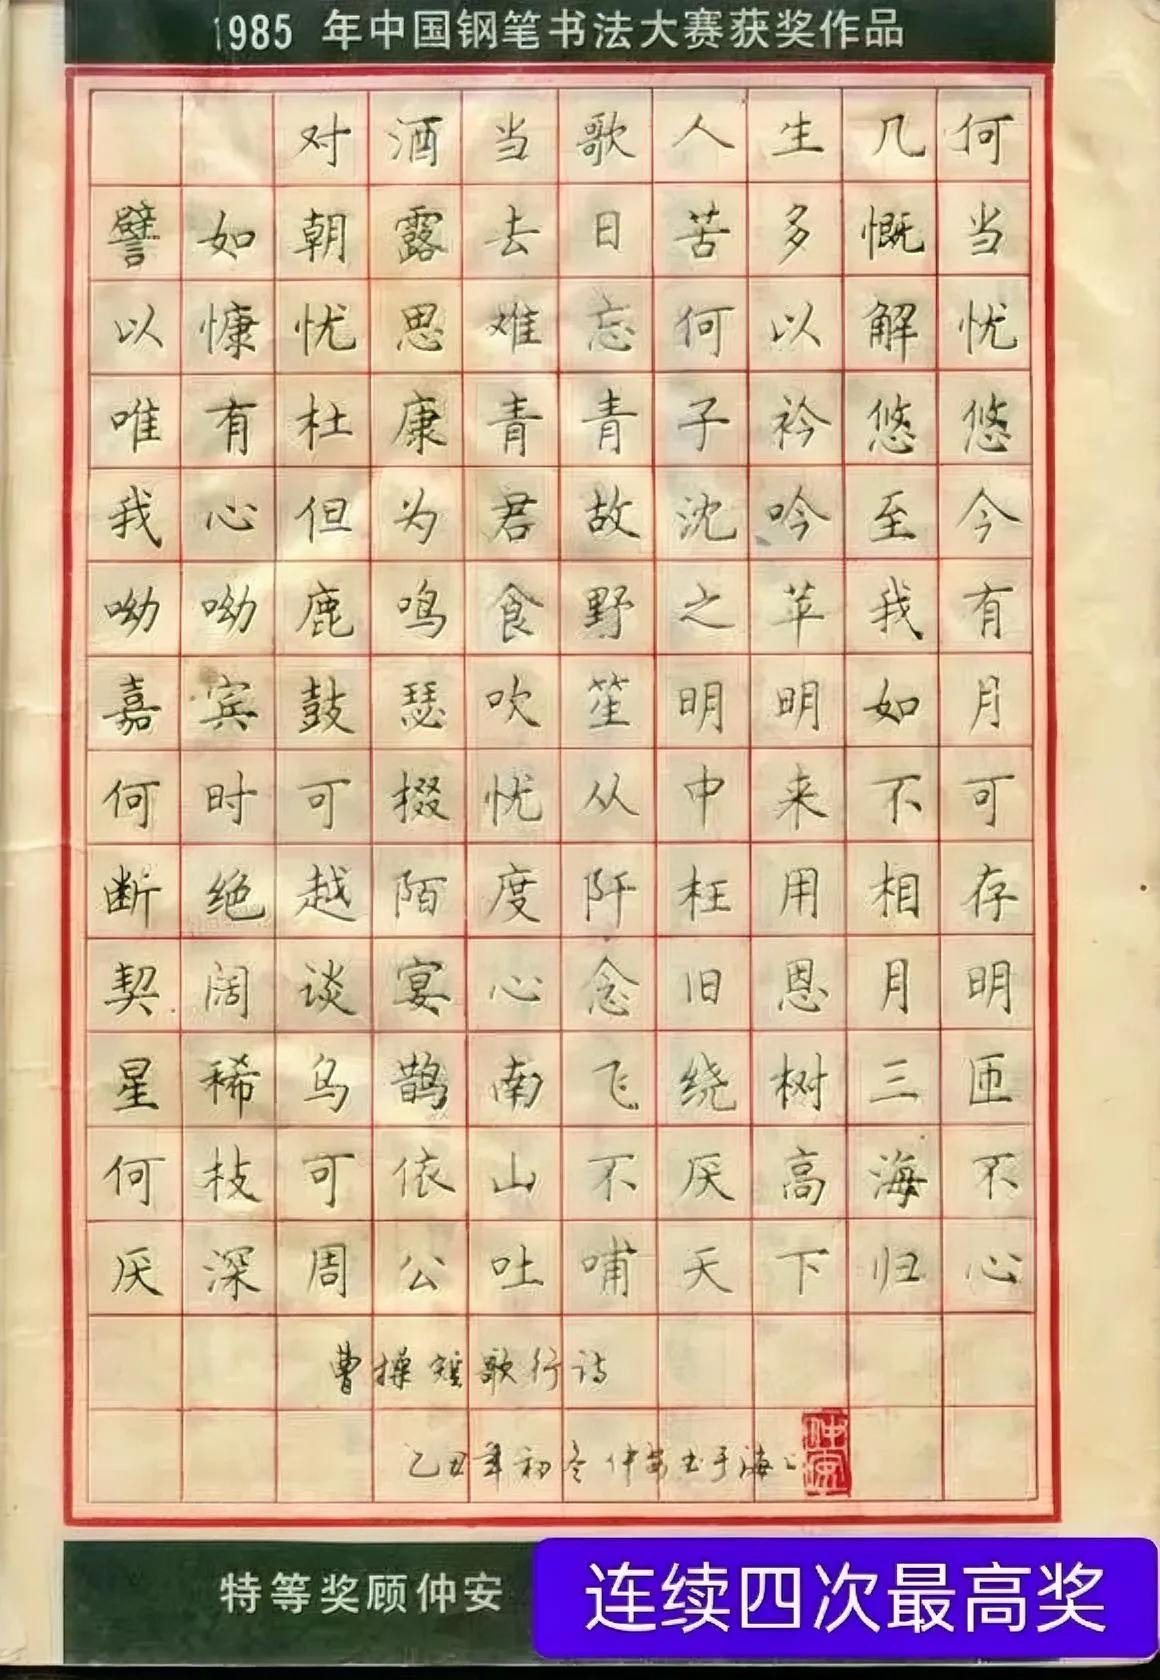 1985 年中国钢笔书法大赛获奖作品
对酒当歌人生几何
譬如朝露去日苦多慨当
以慷忧思难忘何以解忧
唯有杜康青青子衿悠悠
我心但为君故沈吟至今
呦呦鹿鸣食野之苹我有
嘉宾鼓瑟吹笙明明如月
何时可掇忧从中来不可
断绝越陌度阡枉用相存
契阔谈宴心念旧恩月明
星稀乌鹊南飞绕树三匝
何枝可依山不厌高海不
厌深周公吐哺天下归心
曹操短歌行诗
乙丑年初冬仲安书于海上
仲安
特等奖顾仲安
连续四次最高奖